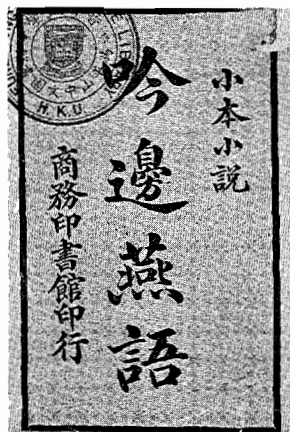 小本小説
吟邊燕語
商務印書館印行
H.K.U.